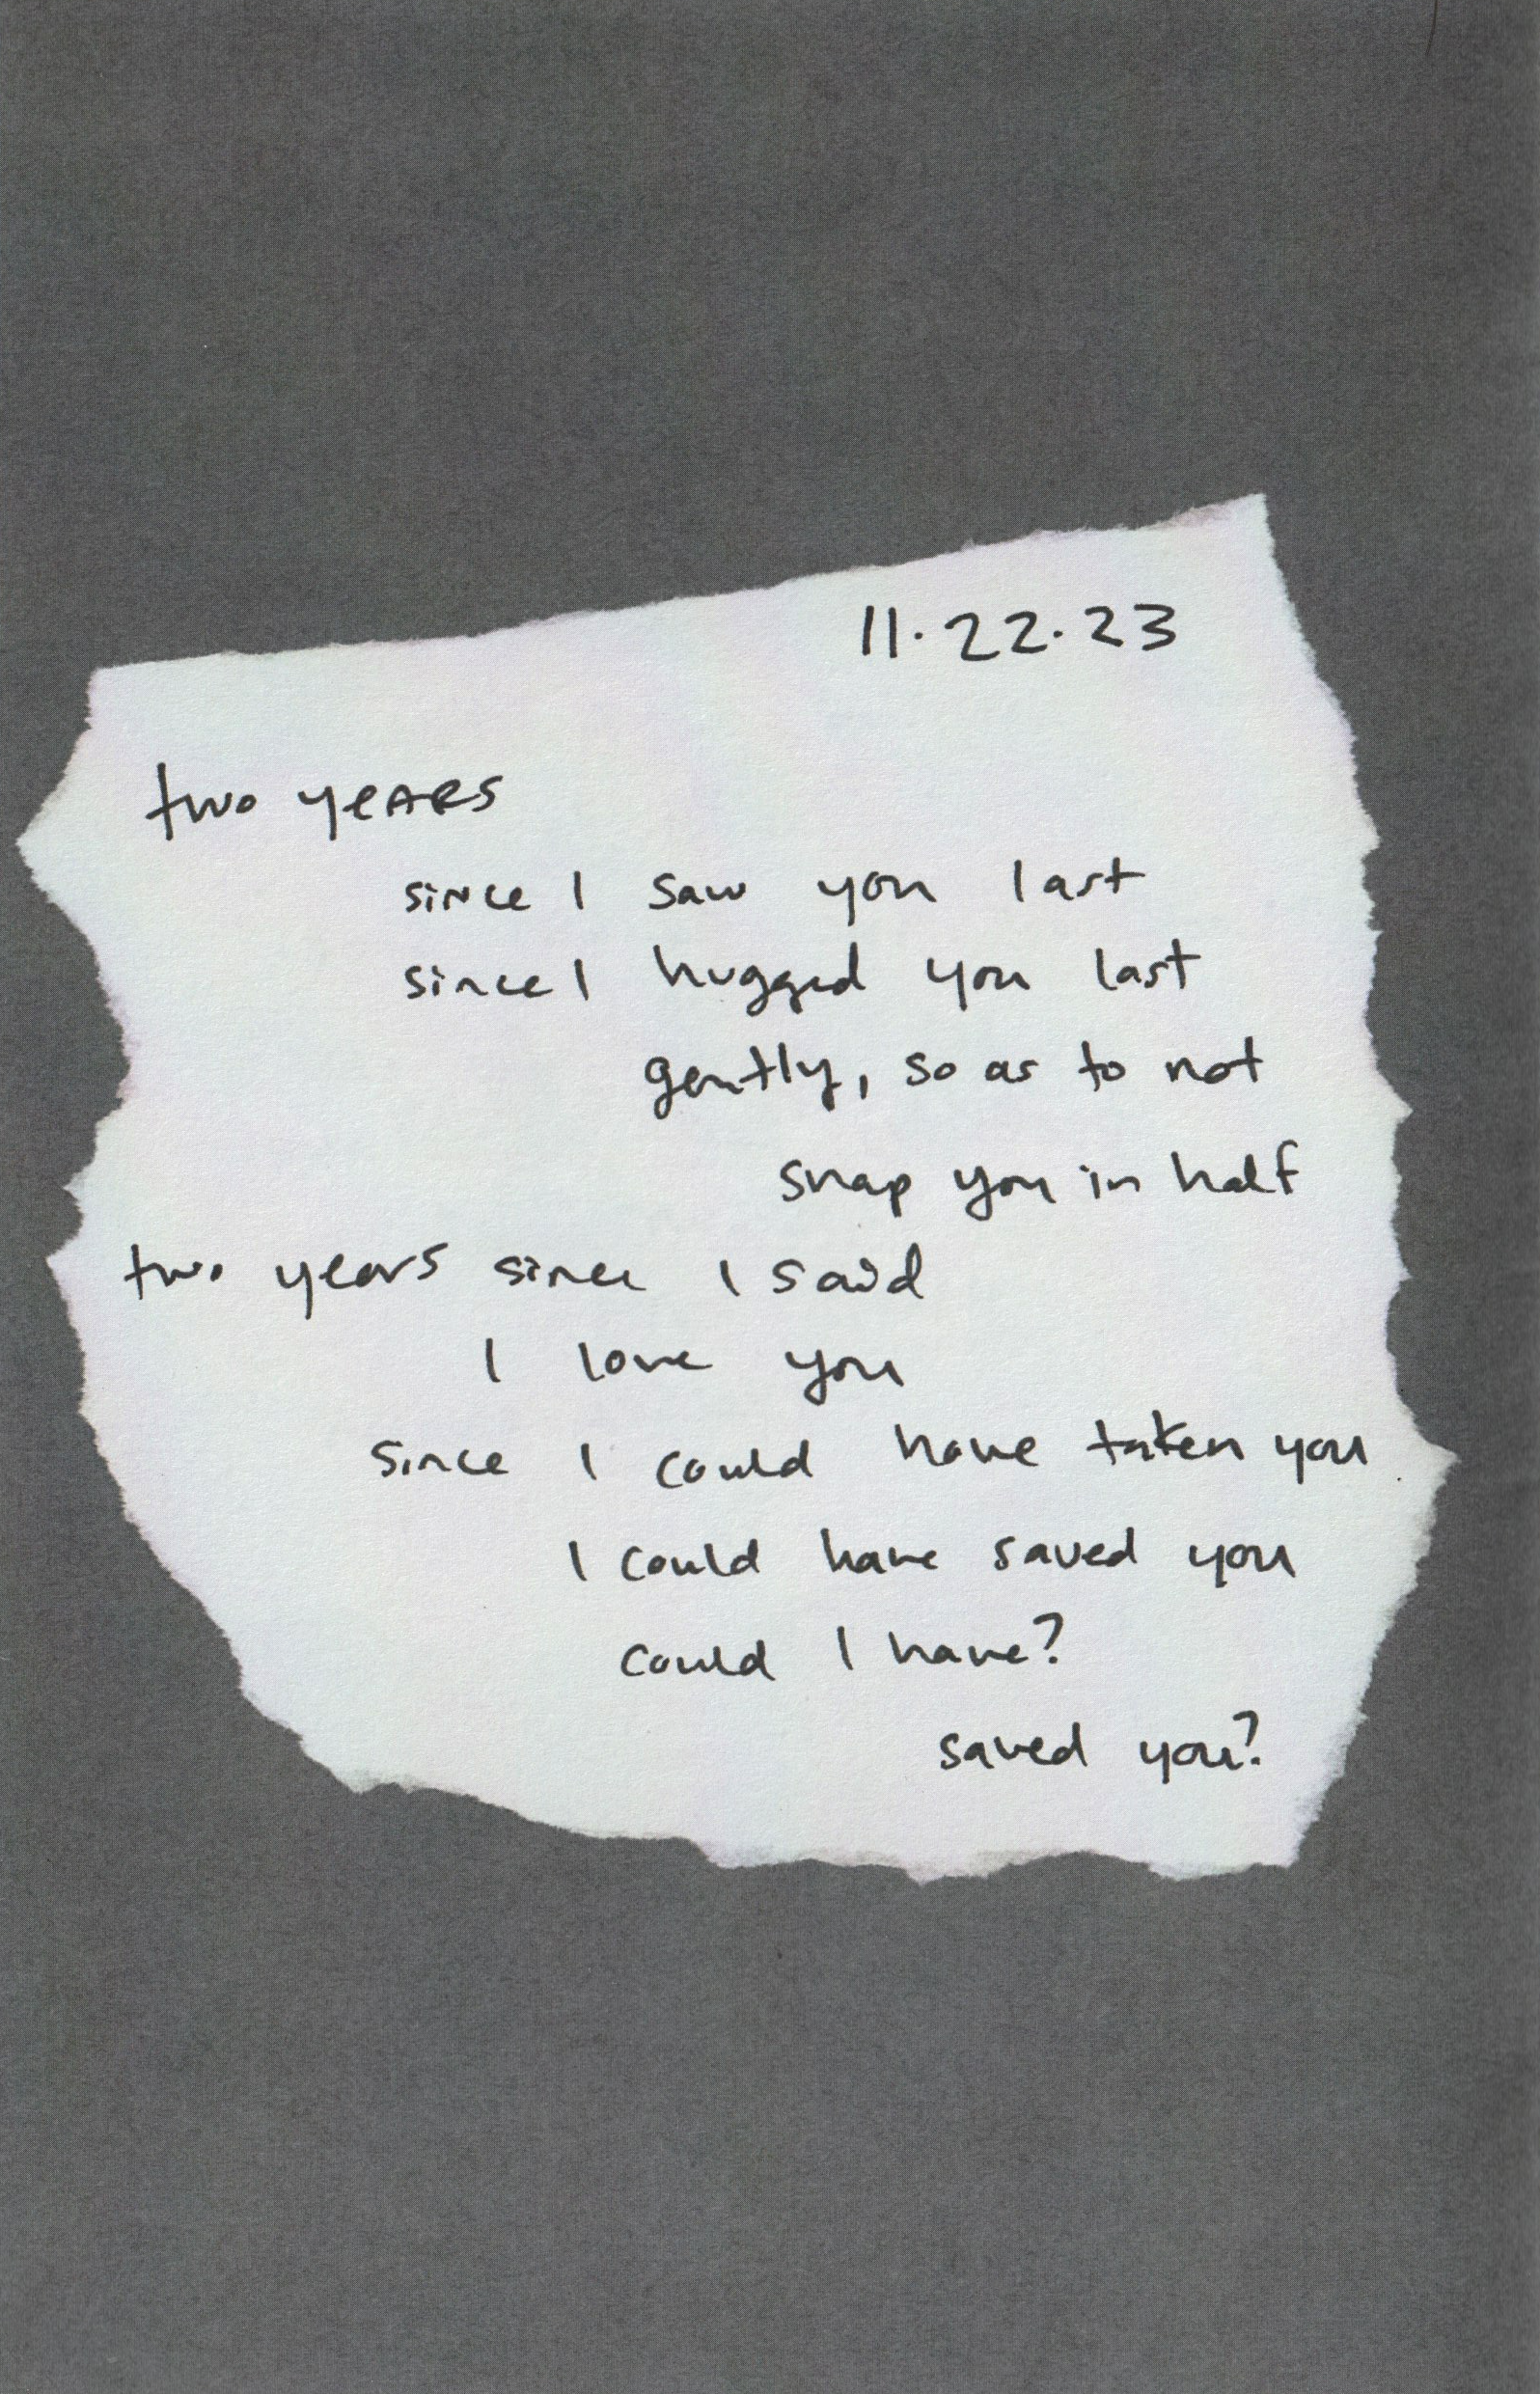 11.22.23
two years
since I saw you last
since I hugged you last
gently, so as to not
snap you in half
two years since I said
I love you
since I could have taken you
I could have saved you
could I have?
saved you?